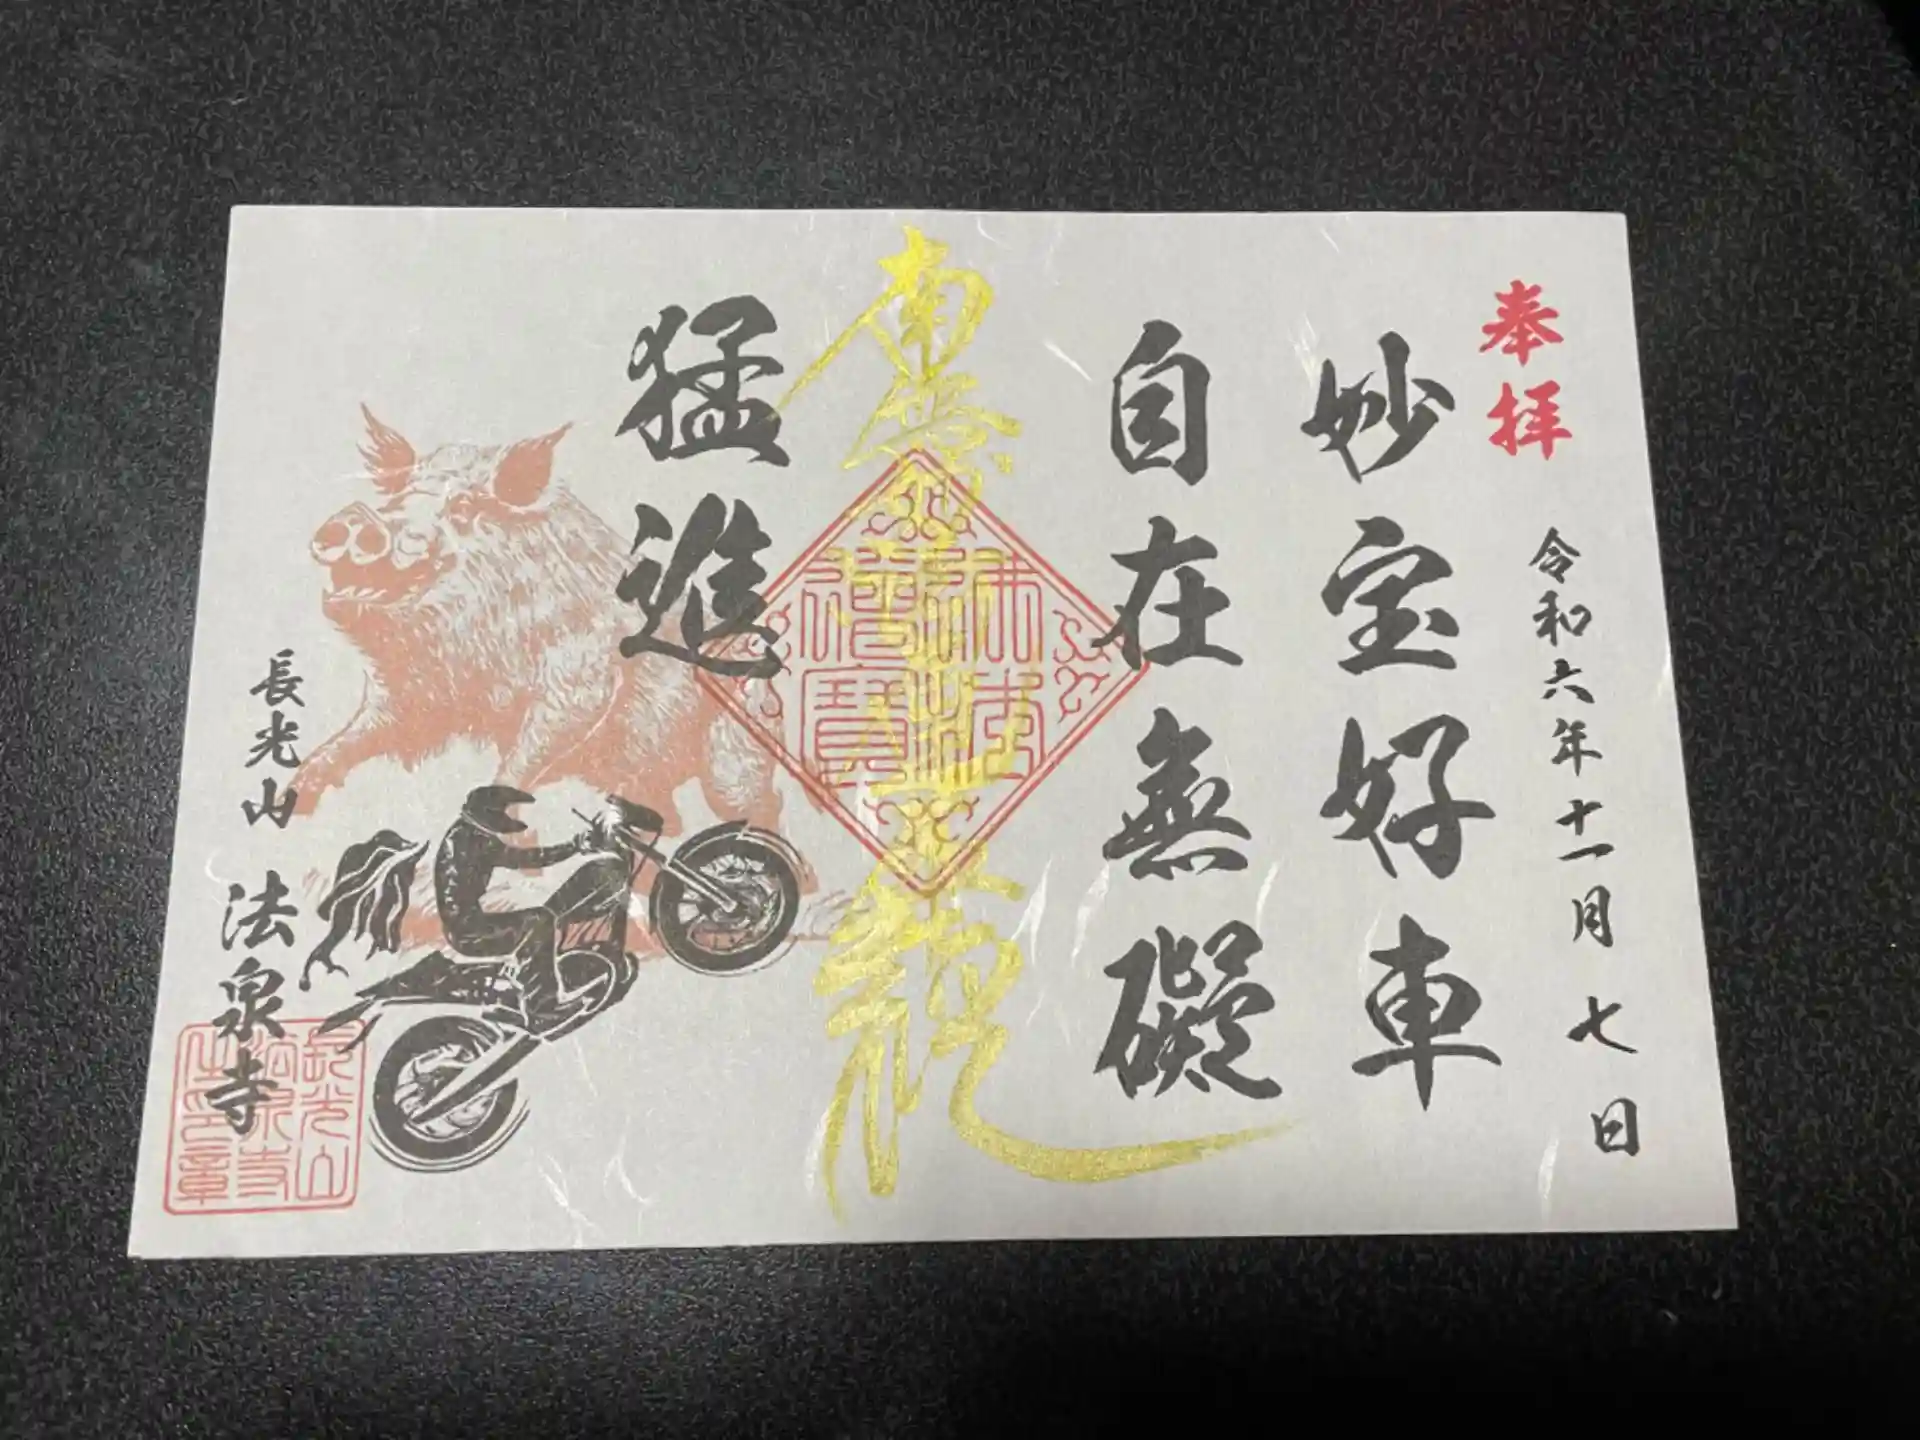 奉拝
令和六年十一月七日
妙宝好車
自在無礙
南無
佛法
僧寶
猛進
長光山 法泉寺
長光山
法泉寺
之印章